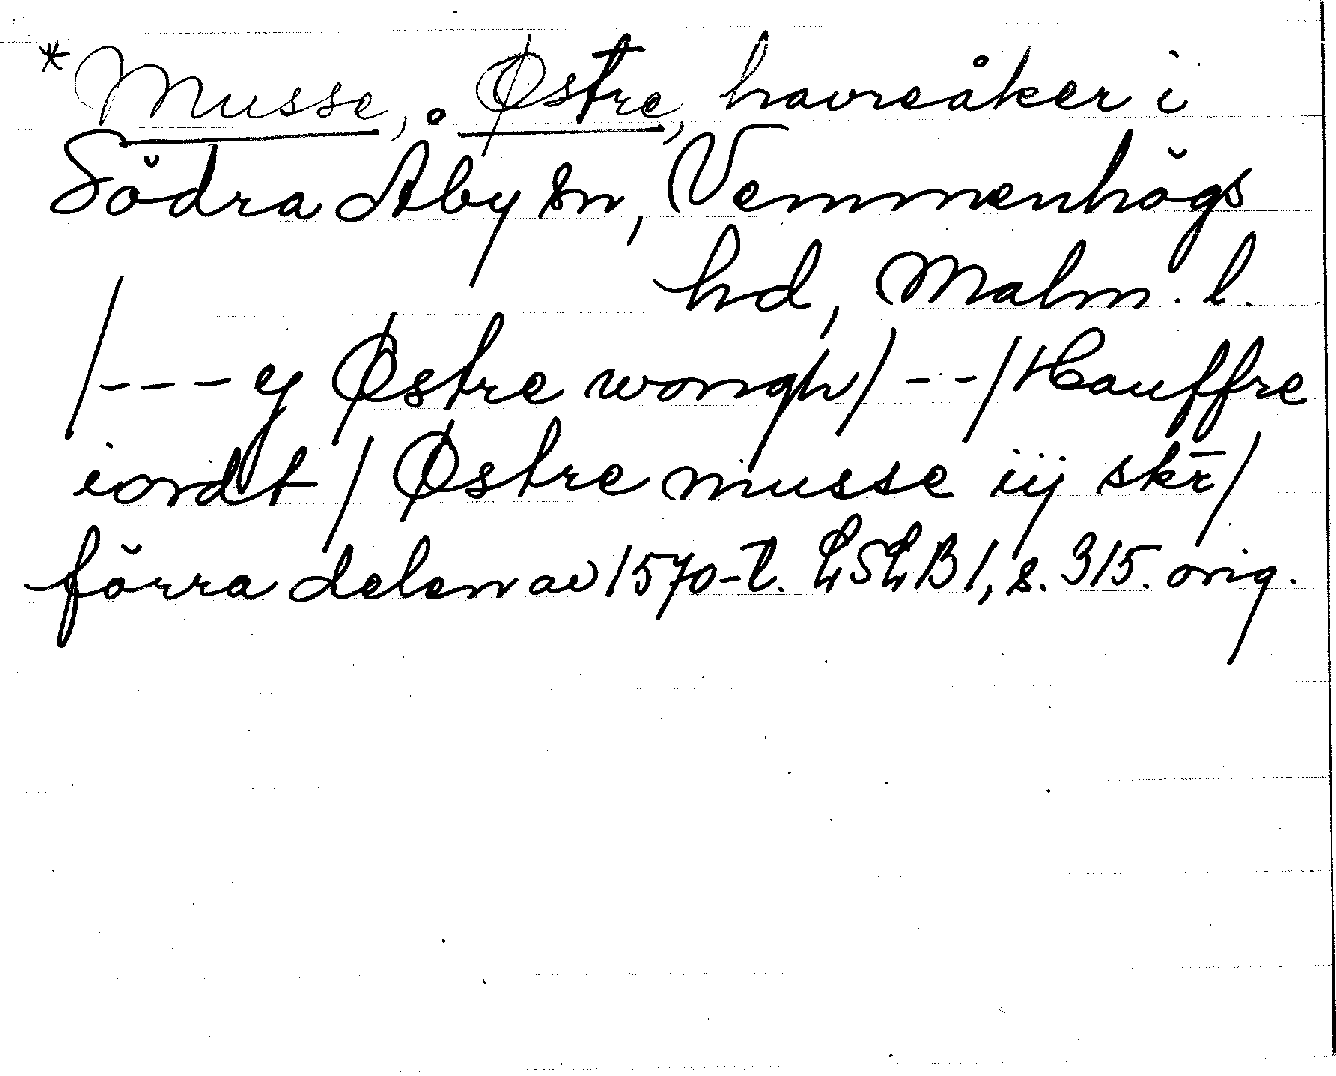 *Musse, Østre, havreåker i
Södra Åby sn, Vemmenhögs
hd, Malm. l.
/--- ij Østre wongh/ --/ Hauffre
iordt / Østre musse iij skr̄/
förra delen av 1570-t. LSLB 1, s. 315. orig.